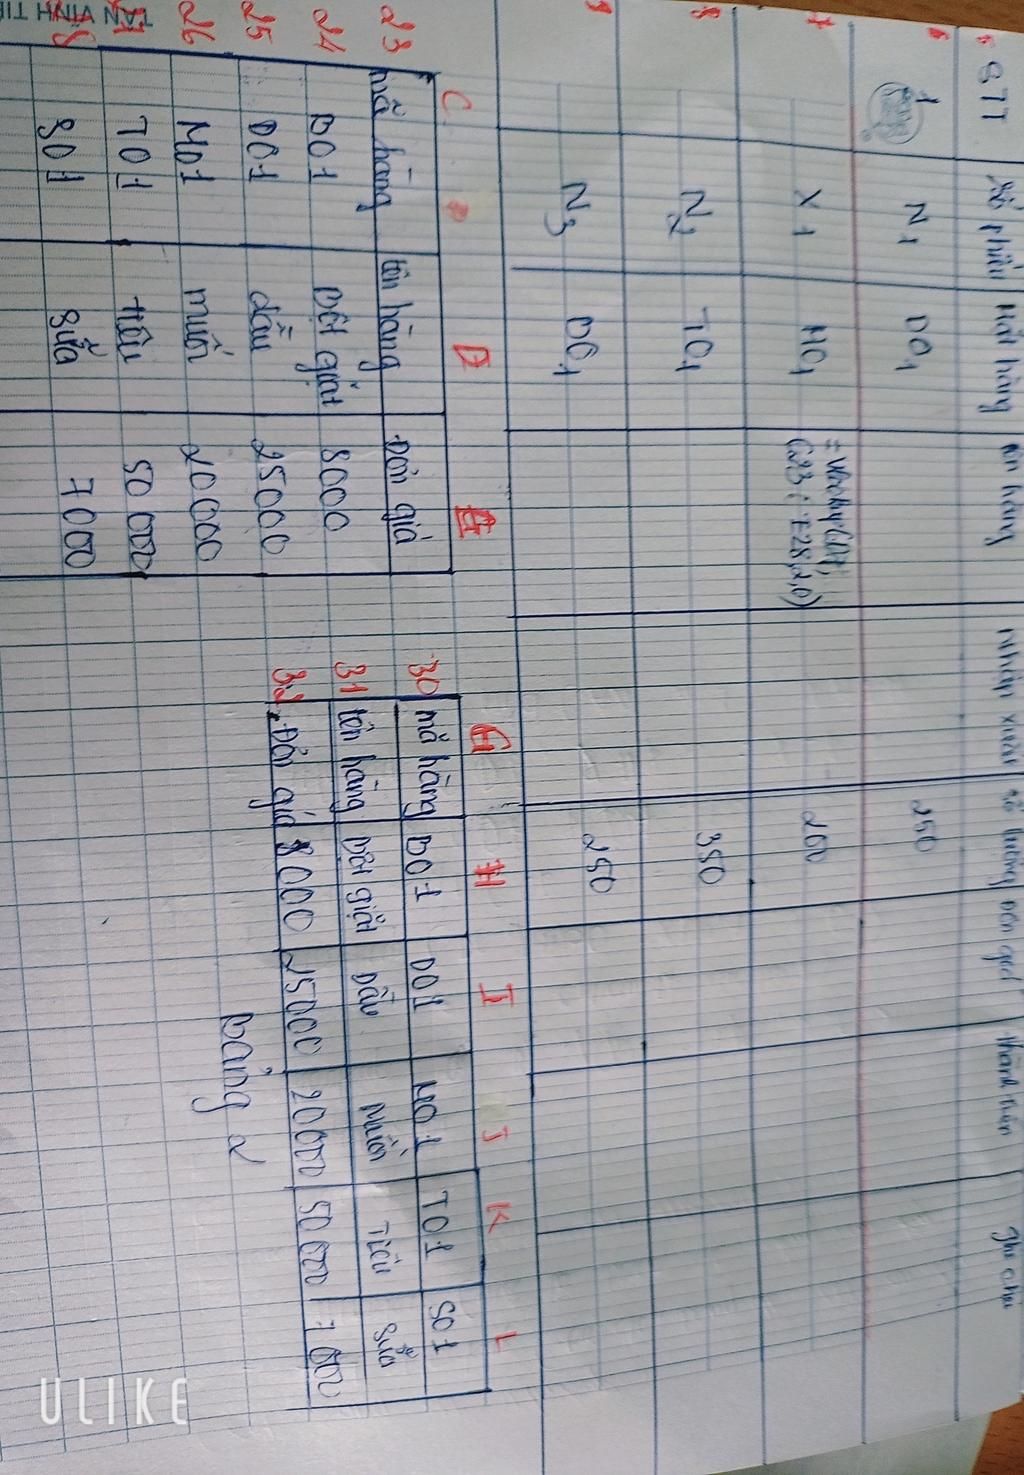 5 STT Số phiếu Mặt hàng tên hàng Nhập xuất số lượng Đơn giá thành tiền ghi chú
6 1 N1 D01 250
7 X1 M01 200
(C23:E28,2,0)
8 N2 T01 350
9 N3 D01 250
C D E
23 mã hàng tên hàng Đơn giá
24 B01 Bột giặt 8000
25 D01 dầu 25000
26 M01 muối 20000
27 T01 tiêu 50000
28 S01 sữa 7000
G H I J K L
30 mã hàng B01 D01 M01 T01 S01
31 tên hàng Bột giặt Dầu Muối Tiêu Sữa
32 Đơn giá 8000 25000 20000 50000 7000
bảng 2
TÂN VĨNH TI
ULIKE